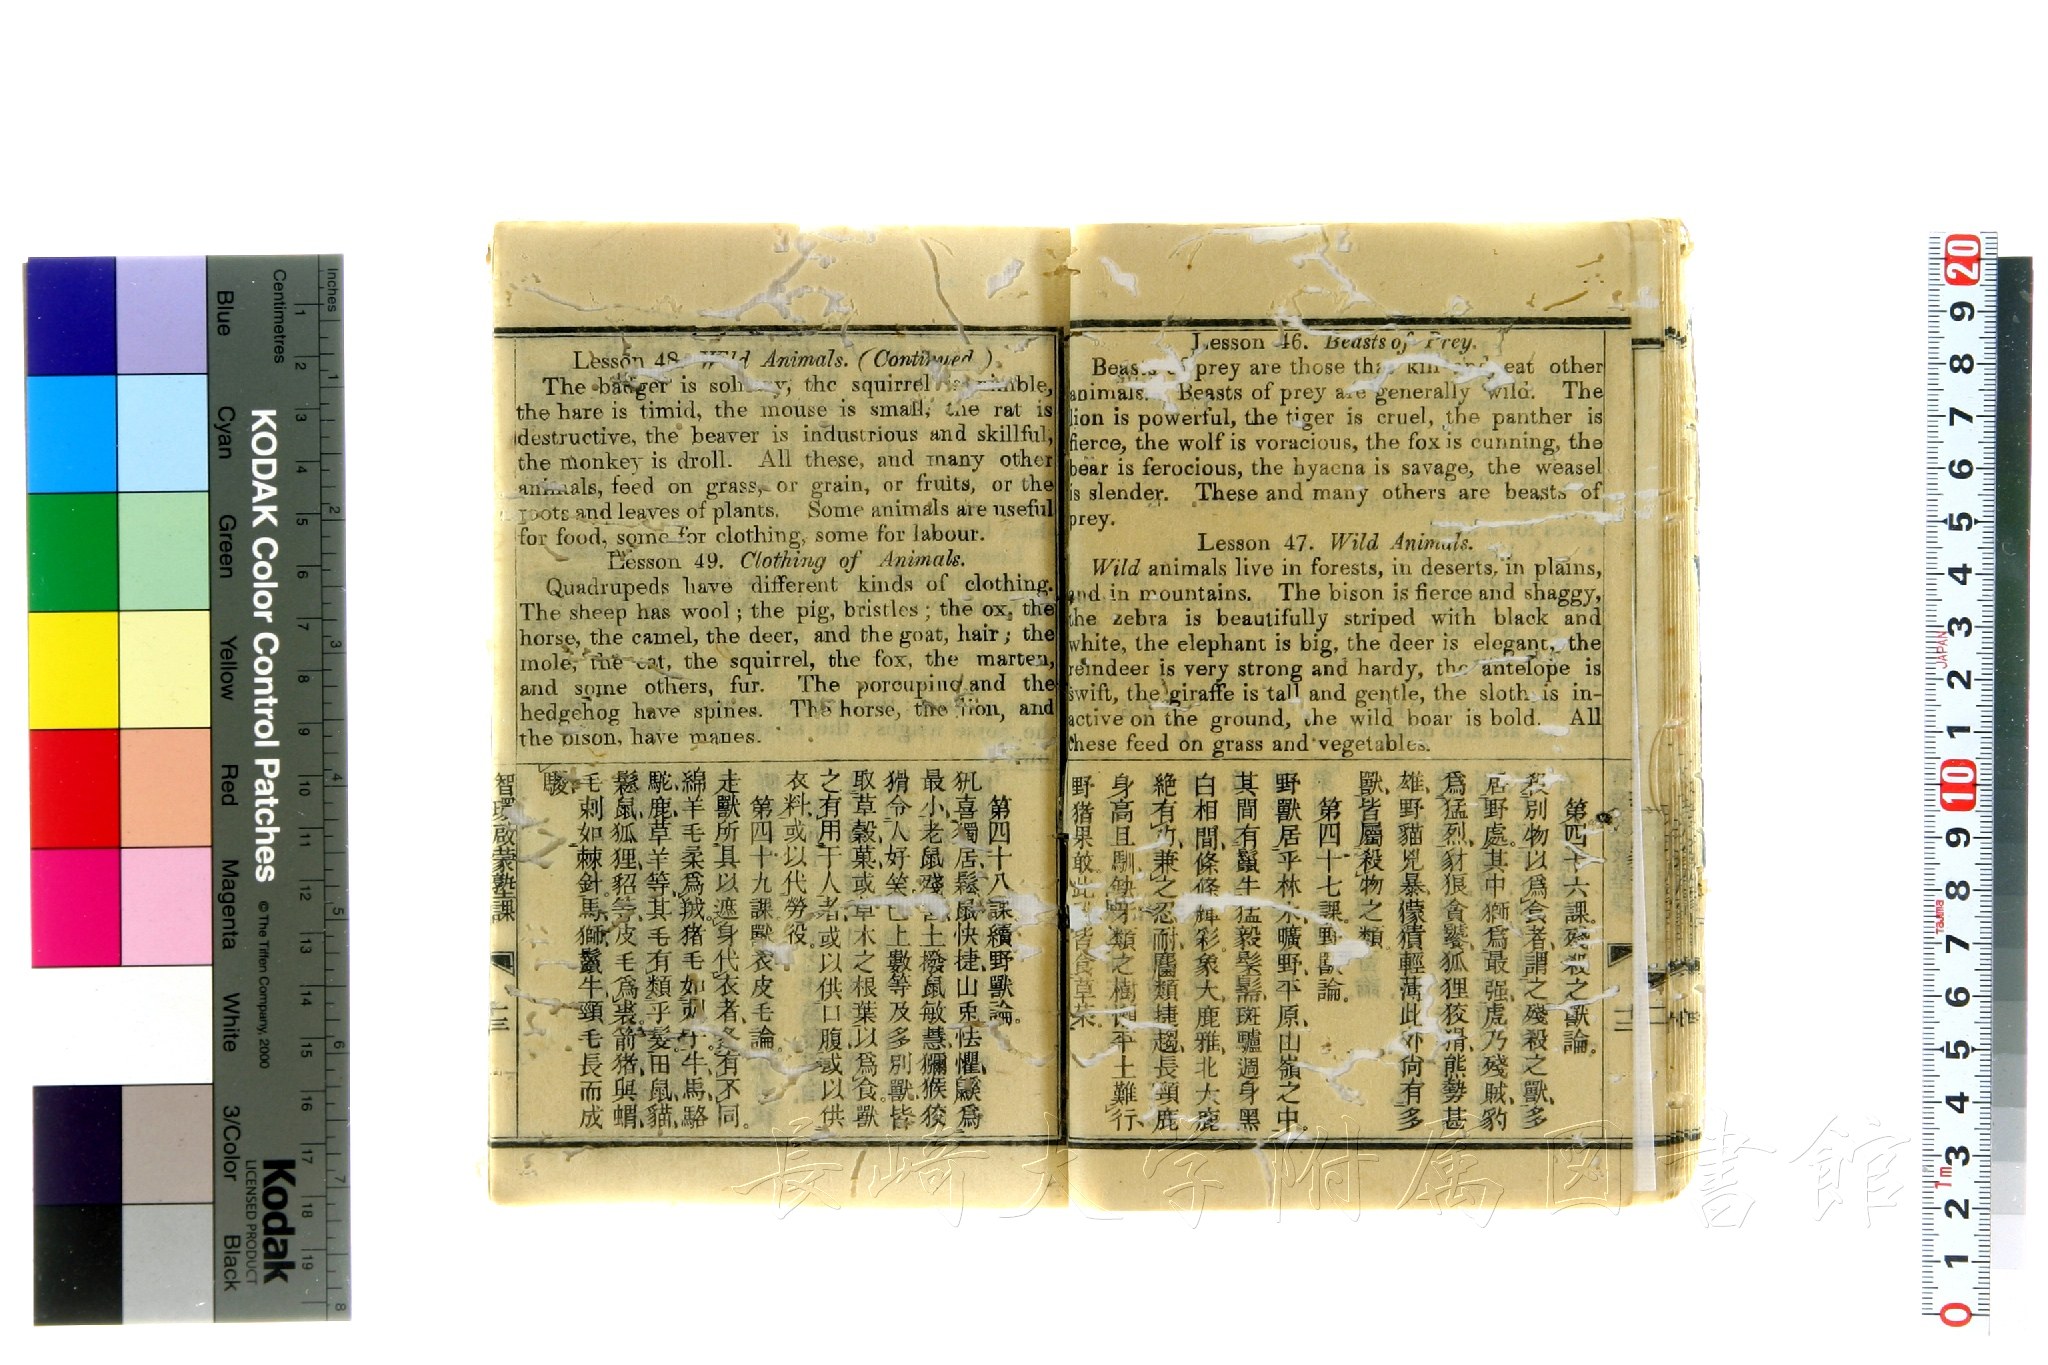 Lesson 46. Beasts of Prey.
Beasts of prey are those that kill and eat other
animals. Beasts of prey are generally wild. The
lion is powerful, the tiger is cruel, the panther is
fierce, the wolf is voracious, the fox is cunning, the
bear is ferocious, the hyaena is savage, the weasel
is slender. These and many others are beasts of
prey.
Lesson 47. Wild Animals.
Wild animals live in forests, in deserts, in plains,
and in mountains. The bison is fierce and shaggy,
the zebra is beautifully striped with black and
white, the elephant is big, the deer is elegant, the
reindeer is very strong and hardy, the antelope is
swift, the giraffe is tall and gentle, the sloth is in-
active on the ground, the wild boar is bold. All
these feed on grass and vegetables.
第四十六課。殘殺之獸論。
殺別物以爲食者、謂之殘殺之獸、多
居野處。其中獅爲最强、虎乃殘賊、豹
爲猛烈、豺狼貪饕、狐狸狡猾、熊勢甚
雄、野貓兇暴、獴獚輕萬、此外尙有多
獸、皆屬殺物之類。
第四十七課。野獸論。
野獸居乎林木、曠野、平原、山嶺之中。
其間有鬣牛猛毅髮鬆、斑驢週身黑
白相間、條條輝彩、象大、鹿雅、北大鹿
絶有力、兼之忍耐、麕類捷趨、長頸鹿
身高且馴、缺牙類之樹 平土難行、
野猪果敢。此 皆食草菜。
Lesson 48. Wild Animals. (Continued.)
The badger is solitary, the squirrel is nimble,
the hare is timid, the mouse is small, the rat is
destructive, the beaver is industrious and skillful,
the monkey is droll. All these, and many other
animals, feed on grass, or grain, or fruits, or the
roots and leaves of plants. Some animals are useful
for food, some for clothing, some for labour.
Lesson 49. Clothing of Animals.
Quadrupeds have different kinds of clothing.
The sheep has wool; the pig, bristles; the ox, the
horse, the camel, the deer, and the goat, hair; the
mole, the cat, the squirrel, the fox, the marten,
and some others, fur. The porcupine and the
hedgehog have spines. The horse, the lion, and
the bison, have manes.
第四十八課。續野獸論。
犼喜獨居、鬆鼠快捷、山兎怯懼、鼷爲
最小、老鼠殘害、土撥鼠敏慧、獼猴狡
猾、令人好笑。已上數等、及多別獸、皆
取草、穀、菓、或草木之根葉以爲食。獸
之有用于人者、或以供口腹、或以供
衣料、或以代勞役。
第四十九課。獸衣皮毛論。
走獸所具以遮身代衣者、各有不同。
綿羊毛柔爲羢、猪毛如刺、牛、馬、駱
駝、鹿、草羊等、其毛有類乎髮、田鼠、貓、
鬆鼠、狐狸、貂等、皮毛爲裘、箭猪與蝟、
毛刺如棘針。馬、獅、鬣牛、頸毛長而成
駿。
智環啟蒙塾課
十三
長崎大学附属図書館
KODAK Color Control Patches
© The Tiffen Company, 2000
Kodak
LICENSED PRODUCT
Inches
Centimetres
Blue
Cyan
Green
Yellow
Red
Magenta
White
3/Color
Black
1 2 3 4 5 6 7 8 9 10 11 12 13 14 15 16 17 18 19
1 2 3 4 5 6 7 8
20 9 8 7 6 5 4 3 2 1 10 9 8 7 6 5 4 3 2 1 0
JAPAN
1m